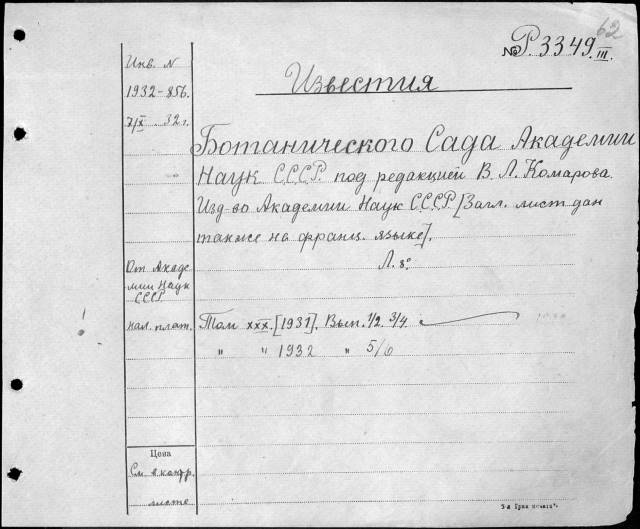 62
№ Р. 3349. III.
Известия
Инв. N
1932–856.
7/X 32 г.
Ботанического Сада Академии
Наук С.С.С.Р. под редакцией В. Л. Комарова.
Изд-во Академии Наук С.С.С.Р. [Загл. лист дан
также на франц. языке].
Л. 8°
От Академии Наук
СССР
нал. плат.
Том XXX. [1931]. Вып. 1/2. 3/4
" " 1932 " 5/6
Цена
См. в контр.
листе